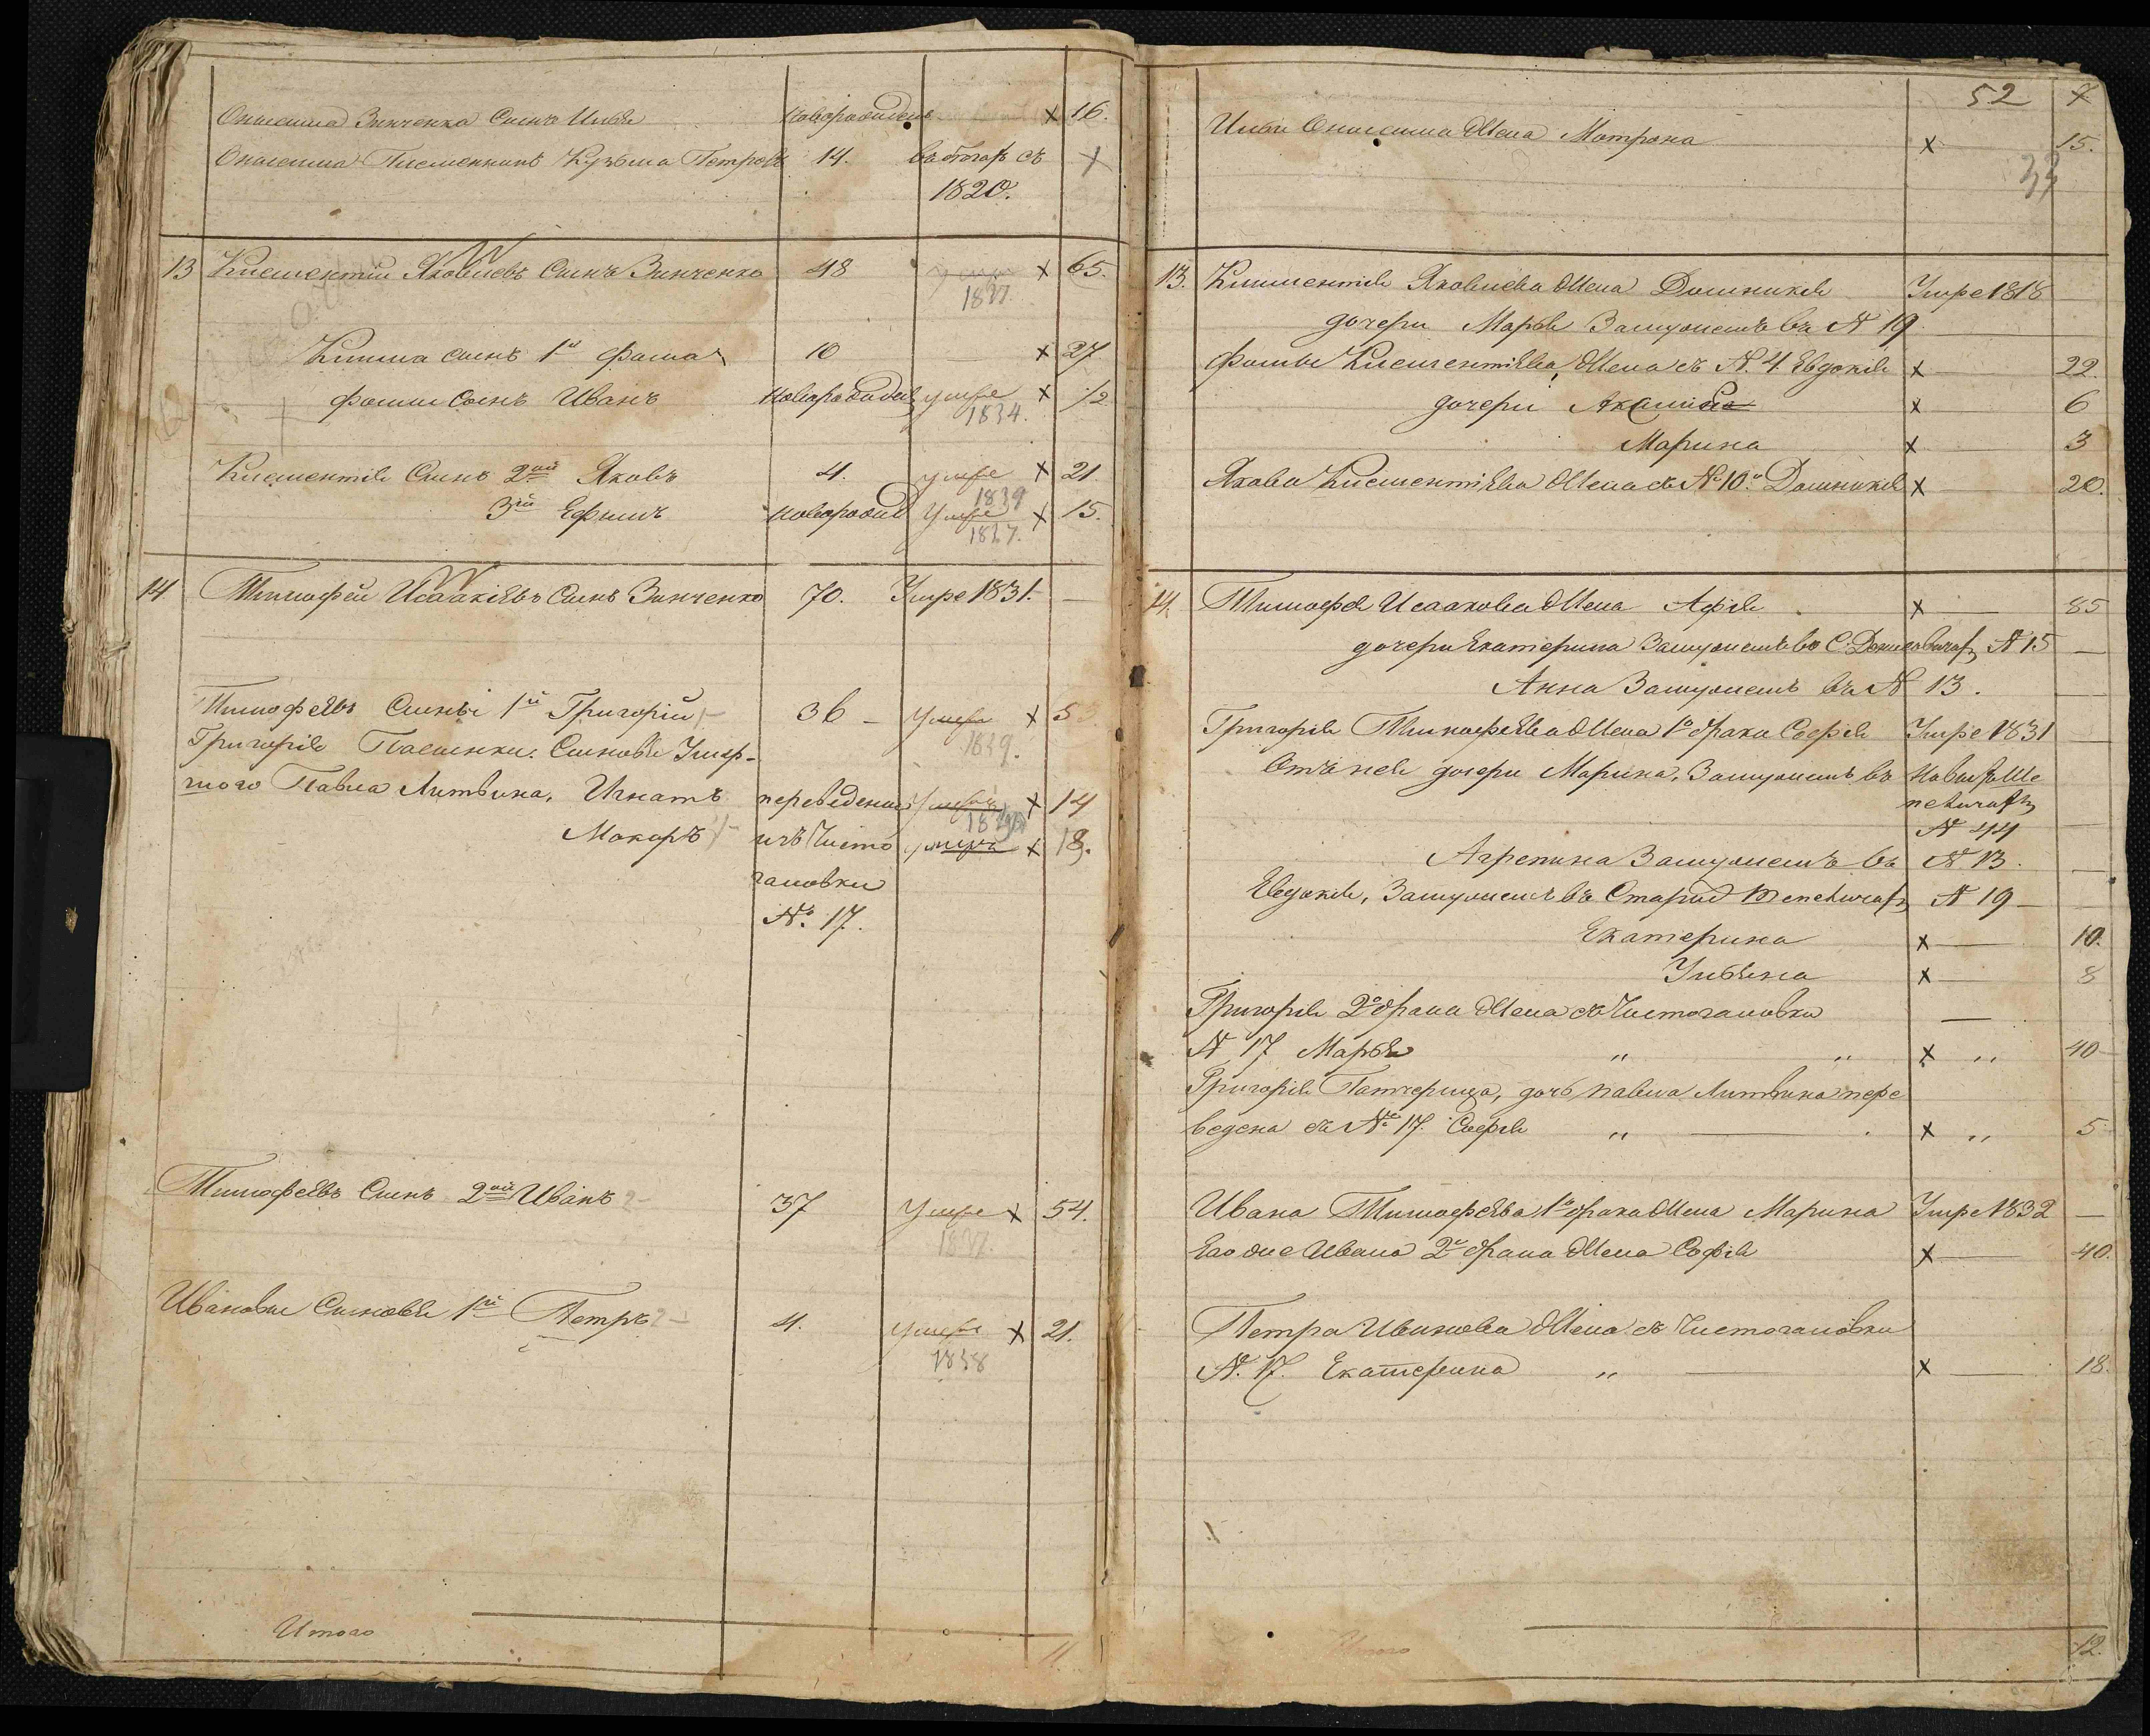 Онисима Зинченка Сынъ Илья новорожден х 16.
Онисима Племенникъ Кузьма Петровъ 14. въ бѣгахъ съ х
1820.
13 Климентій Яковлевъ Сынъ Зинченко 48 х 65.
1837.
Клима сынъ 1й Фома 10 х 27
Фомы Сынъ Иванъ новорожден умре х 1/2
1834.
Климентія Сынъ 2ой Яковъ 4. умре х 21
1839
3ій Ефимъ новорожд умре х 15.
1837.
14 Тимофей Исаакіевъ Сынъ Зинченко 70. Умре 1831. —
Тимофеевы Сыны 1й Григорій 36 — умре х 53
1839.
Григорія Пасынки. Сыновья Умер-
шого Павла Литвина, Игнатъ переведены х 14
Макаръ изъ Чисто умре х 18.
галовки
№. 17.
Тимофеевъ Сынъ 2ой Иванъ 37 Умре х 54.
1837.
Ивановы Сыновья 1й Петръ 4. умре х 21.
1838
Итого 11
52
Ильи Онисима Жена Матрона х 15.
13. Климентія Яковлева Жена Домникія Умре 1818
дочери Марья Замужемъ въ № 19.
Фомы Климентіева Жена съ № 4 Евдокія х 22.
дочери Акилина х 6
Марина х 3
Якова Климентіева Жена съ № 10о Домникія х 20.
14. Тимофея Исаакова Жена Афія х — 85
дочери Екатерина Замужемъ въ С. № 15 —
Анна Замужемъ въ № 13. —
Григорія Тимофеева Жена 1о брака Софія Умре 1831 —
Отъ ней дочери Марина, Замужемъ въ Новыхъ Ше
пеличахъ
№ 44 —
Агрепина Замужемъ въ № 13. —
Евдокія, Замужемъ въ Старыхъ Шепеличахъ № 19 —
Екатерина х — 10.
Ульяна х — 8
Григорія 2о брака Жена съ Чистогаловки —
№ 17 Марья „ „ х „ 40
Григорія Патчерица, дочь Павла Литвина пере
ведена съ № 17. Софія „ — х „ 5
Ивана Тимофеева 1о брака Жена Марина Умре 1832 —
Его же Ивана 2о брака Жена Софія х — 40.
Петра Иванова Жена съ Чистогаловки
№. 17. Екатерина „ — х — 18.
Итого 12.